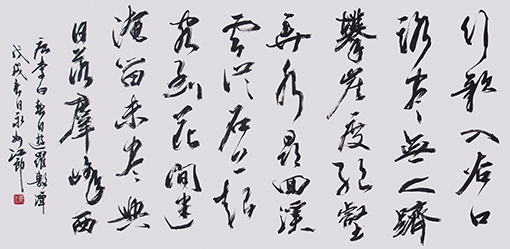 行歌入谷口
路尽無人躋
攀崖度絕壑
弄水尋回溪
雲從石上起
客到花間迷
淹留未尽興
日落羣峰西
唐李白春日遊羅敷潭
戊戌春日